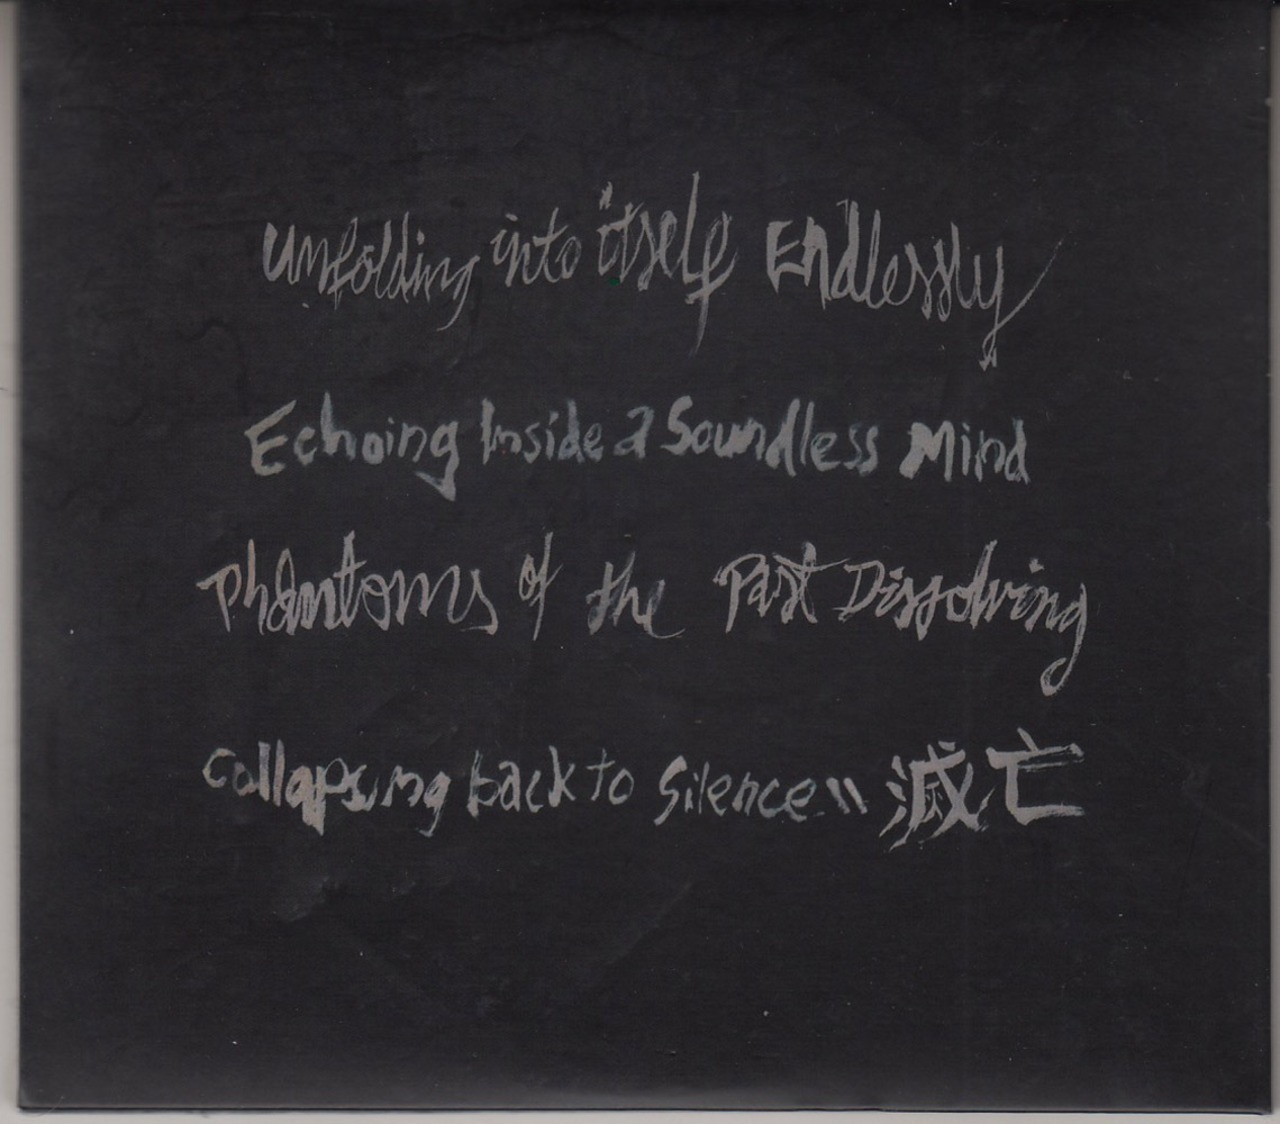 Unfolding into itself Endlessly
Echoing Inside a Soundless Mind
Phantoms of the Past Dissolving
Collapsing back to Silence \\ 滅亡